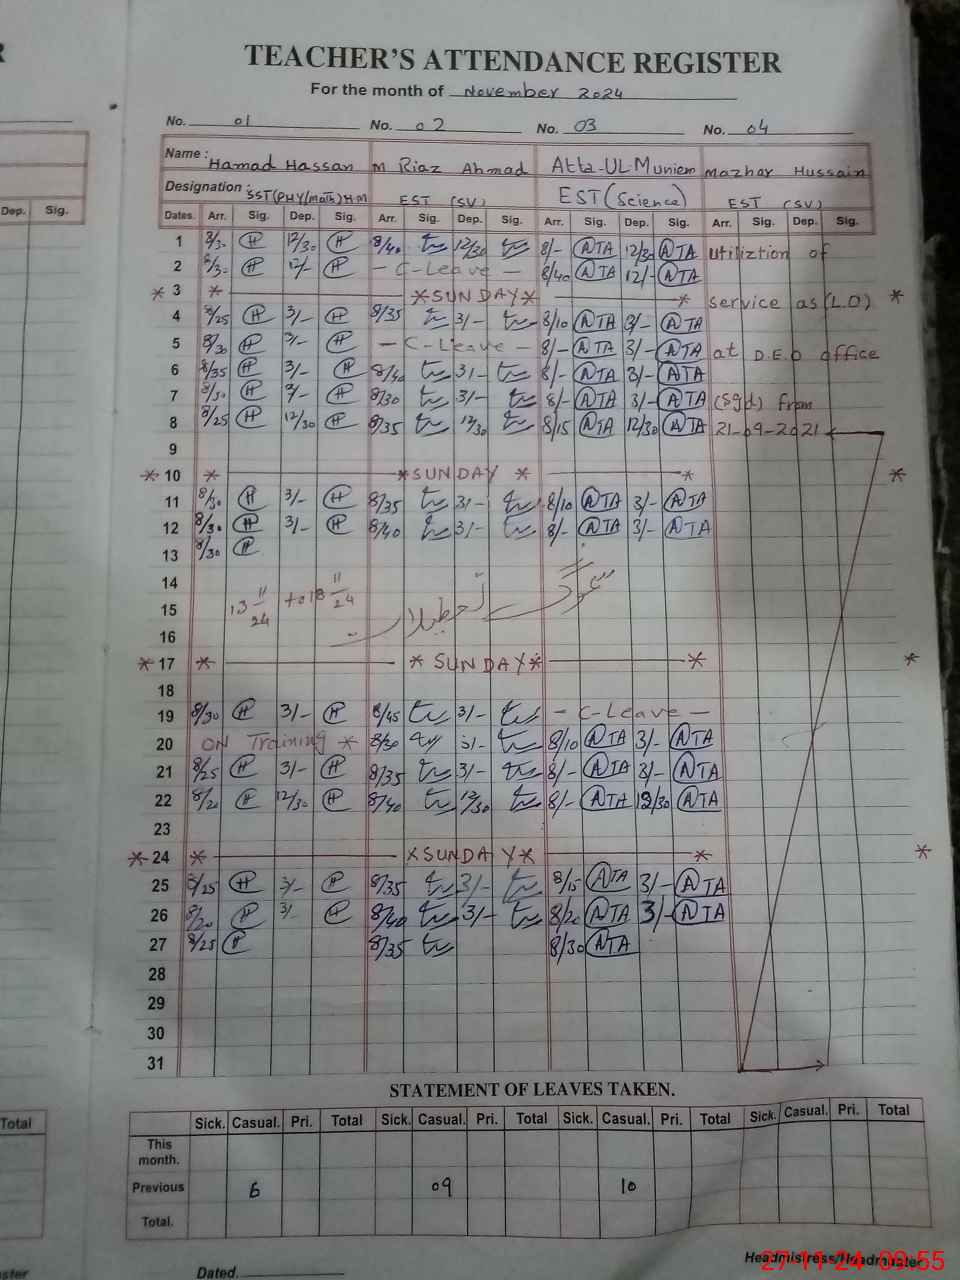 TEACHER'S ATTENDANCE REGISTER
For the month of November 2024
No. 01 No. 02 No. 03 No. 04
Name : Hamad Hassan M Riaz Ahmad Atta-UL-Muniem mazhar Hussain
Designation : SST(PHY/math)H.M EST (SV) EST (Science) EST (SV)
Dep. Sig. Dates. Arr. Sig. Dep. Sig. Arr. Sig. Dep. Sig. Arr. Sig. Dep. Sig. Arr. Sig. Dep. Sig.
1 8/30 H 12/30 H 8/40 12/30 8/- ATA 12/30 ATA utiliztion of
2 8/30 H 12/- H - C-Leave - 8/40 ATA 12/- ATA
* 3 * *SUNDAY* * service as (L.O) *
4 8/25 H 3/- H 8/35 3/- 8/10 ATA 3/- ATA
5 8/30 H 3/- H - C-Leave - 8/- ATA 3/- ATA at D.E.O office
6 8/35 H 3/- H 8/40 3/- 8/- ATA 3/- ATA
7 8/30 H 3/- H 8/30 3/- 8/- ATA 3/- ATA (Sgd) from
8 8/25 H 12/30 H 8/35 12/30 8/15 ATA 12/30 ATA 21-09-2021
9
* 10 * *SUNDAY * * *
11 8/30 H 3/- H 8/35 3/- 8/10 ATA 3/- ATA
12 8/30 H 3/- H 8/40 3/- 8/- ATA 3/- ATA
13 8/30 H
14
15 13 11/24 to 18 11/24 سموگ تعطیلات
16
* 17 * * SUNDAY* * *
18
19 8/30 H 3/- H 8/45 3/- - C-Leave -
20 ON Training * 8/30 3/- 8/10 ATA 3/- ATA
21 8/25 H 3/- H 8/35 3/- 8/- ATA 3/- ATA
22 8/20 H 12/30 H 8/40 12/30 8/- ATA 12/30 ATA
23
* 24 * *SUNDAY* * *
25 8/25 H 3/- H 8/35 3/- 8/15 ATA 3/- ATA
26 8/20 H 3/- H 8/40 3/- 8/20 ATA 3/- ATA
27 8/25 H 8/35 8/30 ATA
28
29
30
31
STATEMENT OF LEAVES TAKEN.
Total Sick. Casual. Pri. Total Sick. Casual. Pri. Total Sick. Casual. Pri. Total Sick. Casual. Pri. Total
This month.
Previous 6 09 10
Total.
Headmistress/Headmaster
Dated.
27-11-24 09:55